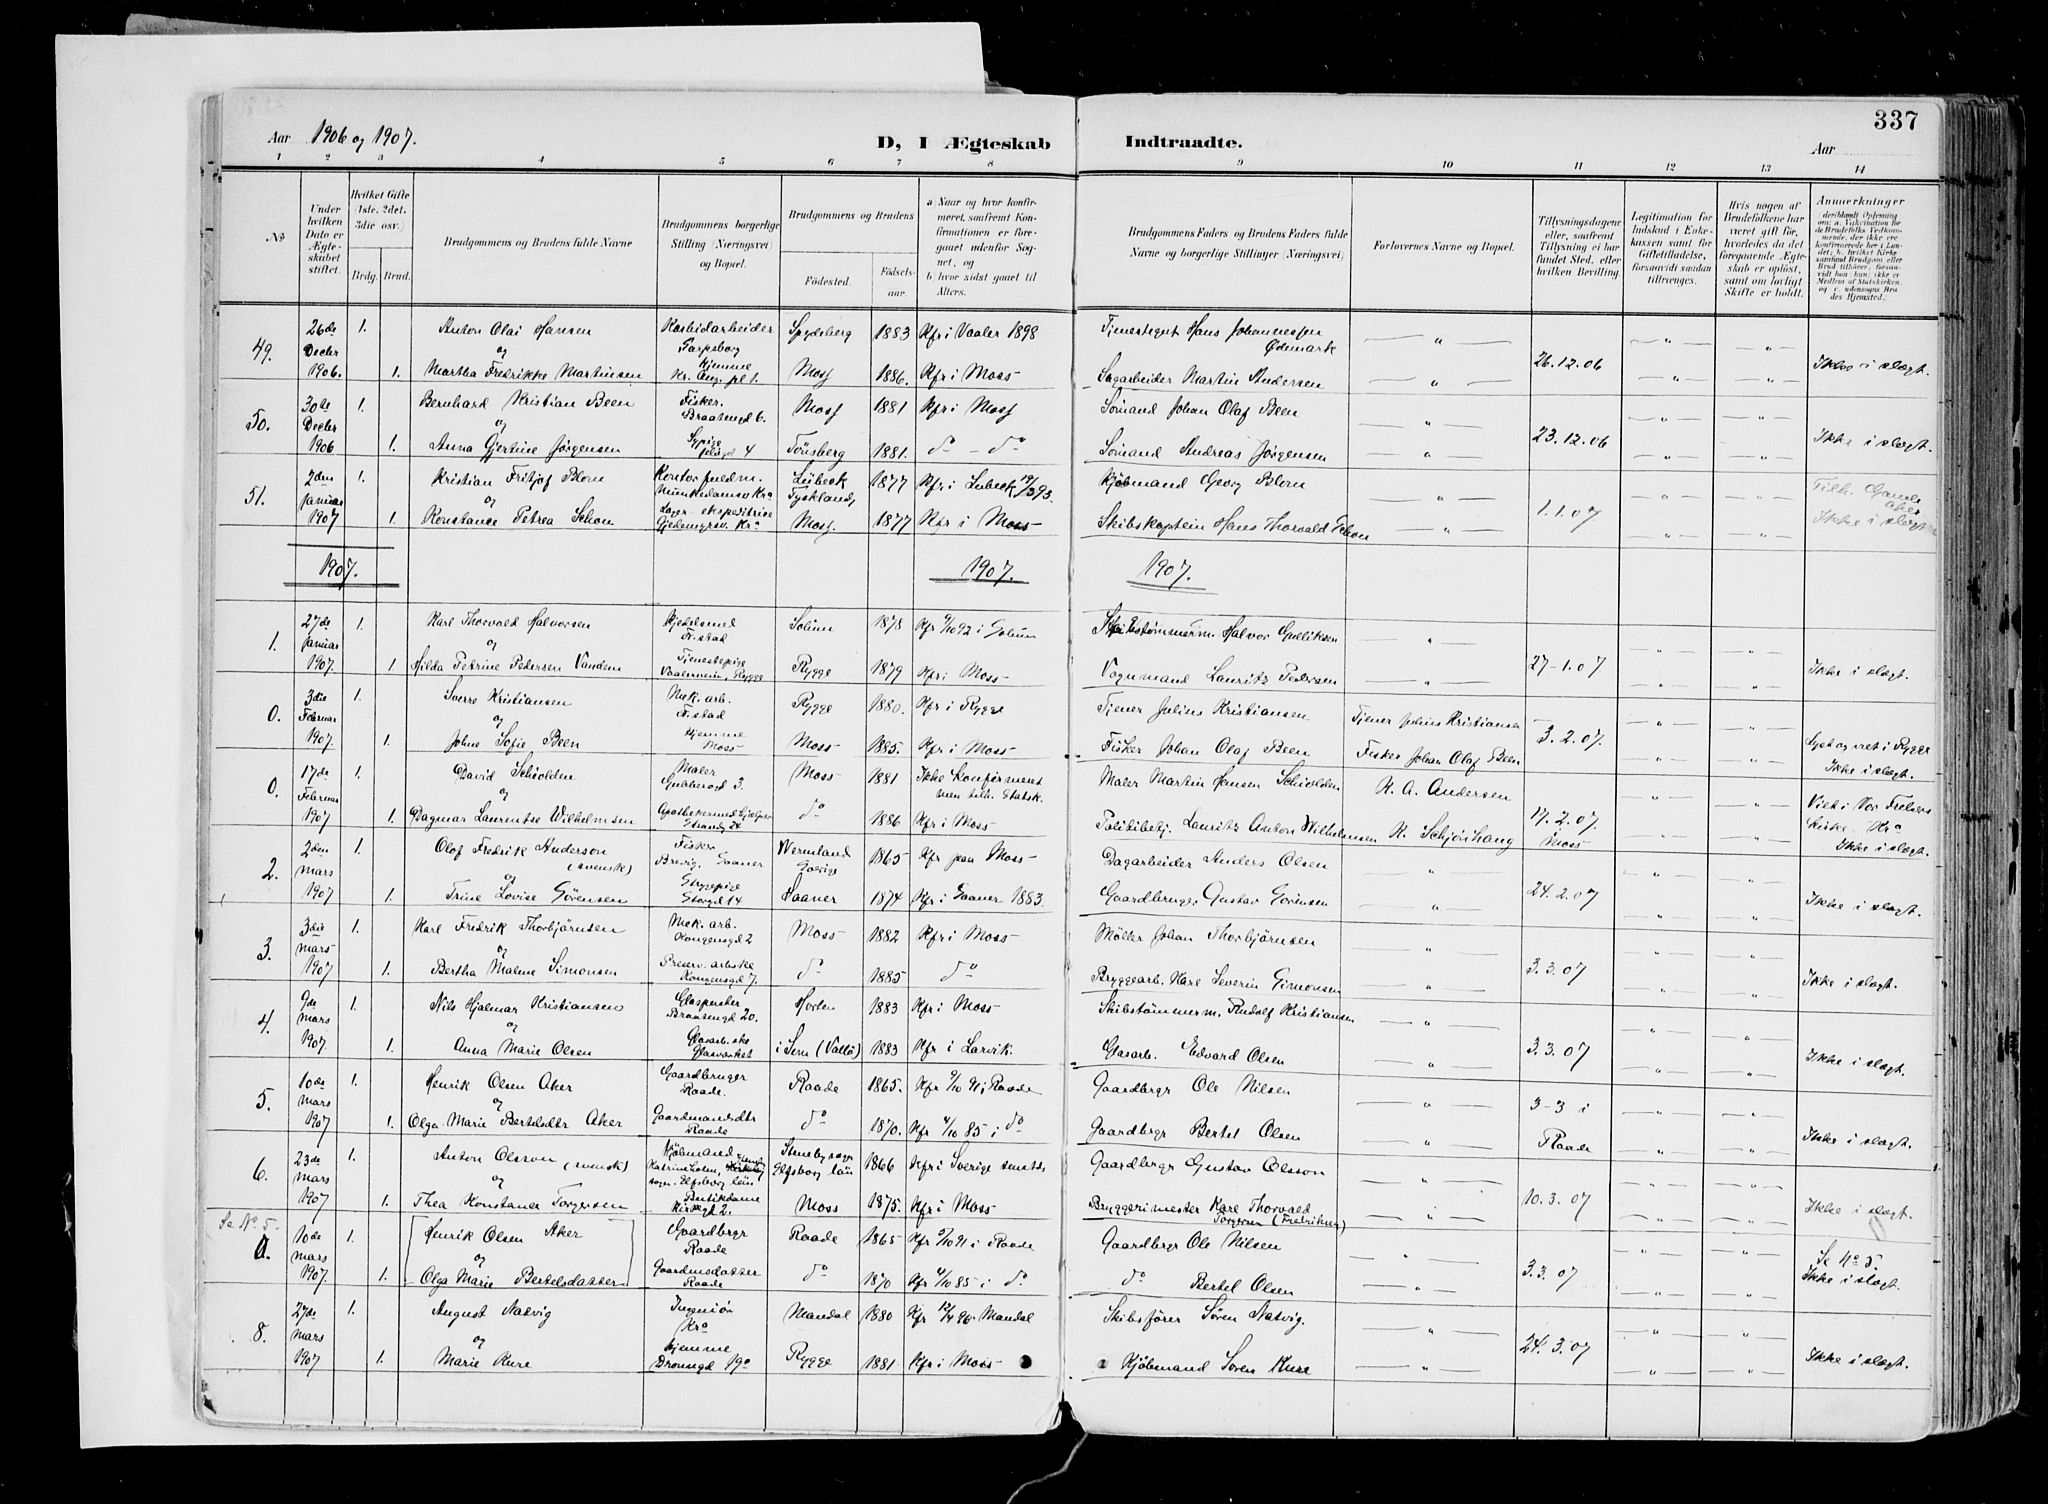 337
Aar 1906 og 1907.
D, I Ægteskab Indtraadte.
Aar
1 2 3 4 5 6 7 8 9 10 11 12 13 14
No
Under hvilken Dato er Ægteskabet stiftet.
Hvilket Gifte (1ste, 2det, 3die osv.)
Brdg. Brud.
Brudgommens og Brudens fulde Navne
Brudgommens borgerlige Stilling (Næringsvei) og Bopæl.
Brudgommens og Brudens
Fødested. Fødsels-aar.
a Naar og hvor konfirmeret, saafremt Konfirmationen er foregaaet udenfor Sognet, og
b, hvor sidst gaaet til Alters.
Brudgommens Faders og Brudens Faders fulde Navne og borgerlige Stillinger (Næringsvei)
Forlovernes Navne og Bopæl.
Tillysningsdagene eller, saafremt Tillysning ei har fundet Sted, efter hvilken Bevilling.
Legitimation for Indskud i Enkekassen samt for Giftetilladelse, forsaavidt saadan tiltrænges.
Hvis nogen af Brudefolkene har været gift før, hvorledes da det foregaaende Ægteskab er opløst, samt om lovligt Skifte er holdt.
Anmerkninger
49. 26de Decbr 1906. 1. Anton Olai Hansen Karbidarbeider Sarpsborg Spydeberg 1883 Kfr i Vaaler 1898 Tjenestegut Hans Johannessen Ødemark
og
1. Martha Fredrikke Martinsen Hjemme Kr. Aug. pl 1. Moss 1886. Kfr i Moss Sagarbeider Martin Andersen 26.12.06 Ikke i slægt.
50. 30de Decbr 1906 1. Bernhard Kristian Been Fisker. Braatengd 6. Moss 1881 Kfr i Moss Sømand Johan Olaf Been
og
1. Anna Gjertine Jørgensen Sypige 4 Tønsberg 1881. do - do Sømand Andreas Jørgensen 23.12.06 Ikke i slægt.
51. 2den januar 1907 1. Kristian Fritjof Blom Kontorfuldm. Munkedamsv Kra Lübeck Tyskland, 1877 Kfr i Lübeck 19/3 93. Kjøbmand Georg Blom
og
1. Konstance Petrea Schou Lager-ekspeditrice Kra Moss. 1877 Kfr i Moss Skibskaptein Hans Thorvald Schou 1.1.07 Tilh. Gamle Aker Ikke i slægt
1907. 1907. 1907.
1. 27de januar 1907. 1. Karl Thorvald Halvorsen Kjedelsmed F.stad Solum 1878 Kfr 2/10 92 i Solum Skibstømmerm. Halvor Gulliksen
og
1 Hilda Petrine Pedersen Vandem Tjenestepige Rygge Rygge 1879 Kfr i Moss Vognmand Lauritz Pedersen 27-1.07 Ikke i slægt.
0. 3die Februar 1907. 1. Sverre Kristiansen Mek. arb. F.stad Rygge 1880. Kfr i Rygge Tjener Julius Kristiansen Tjener Julius Kristiansen
og
1. Johne Sofie Been Hjemme Moss Moss 1885. Kfr i Moss Fisker Johan Olaf Been Fisker Johan Olaf Been 3.2.07. Lyst og viet i Rygge Ikke i slægt.
0. 17de Februar 1907 1. David Schiolden Maler 3. Moss 1881 Ikke konfirmeret men tilh. Statsk. Maler Martin Hansen Schiolden K. A. Andersen
og
1. Dagmar Laurentse Wilhelmsen Strandg 24 do 1886 Kfr i Moss Politibetj. Lauritz Anton Wilhelmsen 17.2.07. Moss Viet i Vor Frelsers Kirke Kra Ikke i slægt.
2. 2den mars 1907 1. Olaf Fredrik Anderson (svensk) Fisker Brevig, Saaner Wermland Sverige 1865 Kfr paa Moss Dagarbeider Anders Olsen
og
1. Trine Lovise Sørensen Strygepige Storgd 14 Saaner 1874 Kfr i Saaner 1883. Gaardbruger Gustav Sørensen 24.2.07 Ikke i slægt.
3. 3die mars 1907 1. Karl Fredrik Thorbjørnsen Mek. arb. Kongensgd 2 Moss 1882 Kfr i Moss Møller Johan Thorbjørnsen
og
1. Bertha Malene Simonsen Preserv. arbske Kongensgd 7. do 1885 do Bryggearb. Karl Severin Simonsen 3.3.07 Ikke i slægt.
4. 9de mars 1907. 1. Nils Hjalmar Kristiansen Glaspuster Braatengd 20. Horten 1883 Kfr i Moss Skibstømmerm. Rudolf Kristiansen
og
1. Anna Marie Olsen Glasarb.ske Glasværket i Sem (Vallø) 1883 Kfr i Larvik. Glasarb. Edvard Olsen 3.3.07 Ikke i slægt.
5. 10de mars 1907 1. Henrik Olsen Aker Gaardbruger Raade. Raade 1865. Kfr 2/10 91 i Raade Gaardbrgr Ole Nilsen
og
1. Olga Marie Bertelsdtr Aker Gaardmandsdtr Raade do 1870. Kfr 4/10 85 i do Gaardbrgr Bertel Olsen 3-3 i Raade Ikke i slægt.
6. 23de mars 1907 1. Anton Olsson (svensk) Kjøbmand Katrineholm, sogn. Elfsborg län Elfsborg län 1866 Kfr i Sverige Gaardbrgr Gustav Olsson
og
1. Thea Konstance Torgersen Butikdame 2. Moss 1875. Kfr i Moss Bryggerimester Karl Thorvald Torgersen (Fredriksen) 10.3.07 Ikke i slægt.
Se No 5.
0. 10de mars 1907. 1. Henrik Olsen Aker Gaardbrgr Raade Raade 1865 Kfr 2/10 91 i Raade Gaardbrgr Ole Nilsen
og
1. Olga Marie Bertelsdatter Gaardmsdatter Raade do 1870 Kfr 4/10 85 i do do Bertel Olsen 3.3.07 Se No 5. Ikke i slægt.
8. 27de mars 1907 1. August Natvig Ingeniør Kra Mandal 1880 Kfr Mandal Skibsfører Søren Natvig.
og
1. Marie Kure Hjemme Dronngd 19 Rygge 1881 Kfr i Moss Kjøbmand Søren Kure 24.3.07 Ikke i slægt.